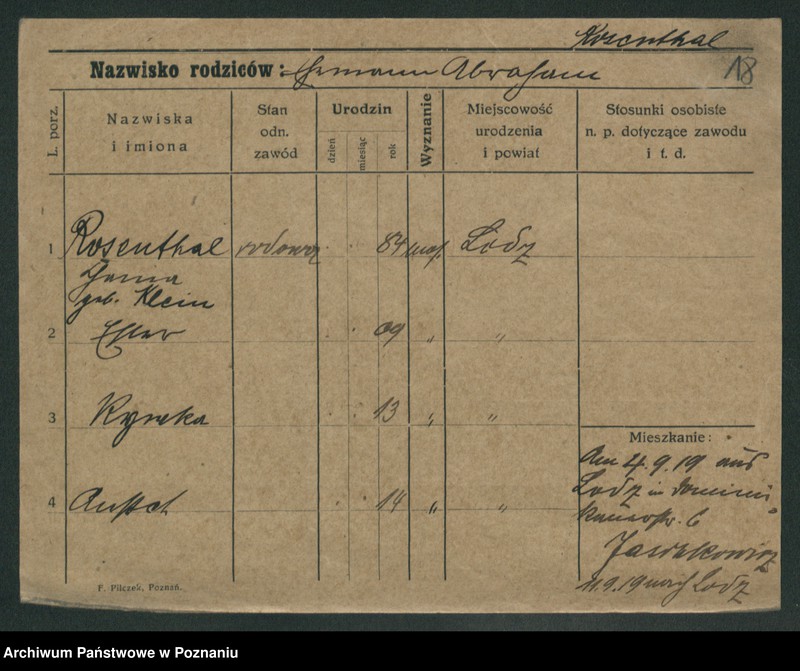 Rosenthal
Nazwisko rodziców: Hermann Abraham
18
L. porz.
Nazwiska
i imiona
Stan
odn.
zawód
Urodzin
dzień
miesiąc
rok
Wyznanie
Miejscowość
urodzenia
i powiat
Stosunki osobiste
n. p. dotyczące zawodu
i t. d.
1 Rosenthal 84 Lodz
geb. Klein
2 Ester 09 " "
3 13 " "
4 14 " "
Mieszkanie:
Am 4.9.19 aus
Lodz in Domini
kanerstr. 6
11.9.19 nach Lodz
F. Pilczek, Poznań.
Archiwum Państwowe w Poznaniu